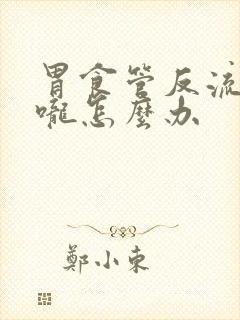 胃食管反流
嚨怎麼办
鄭小東